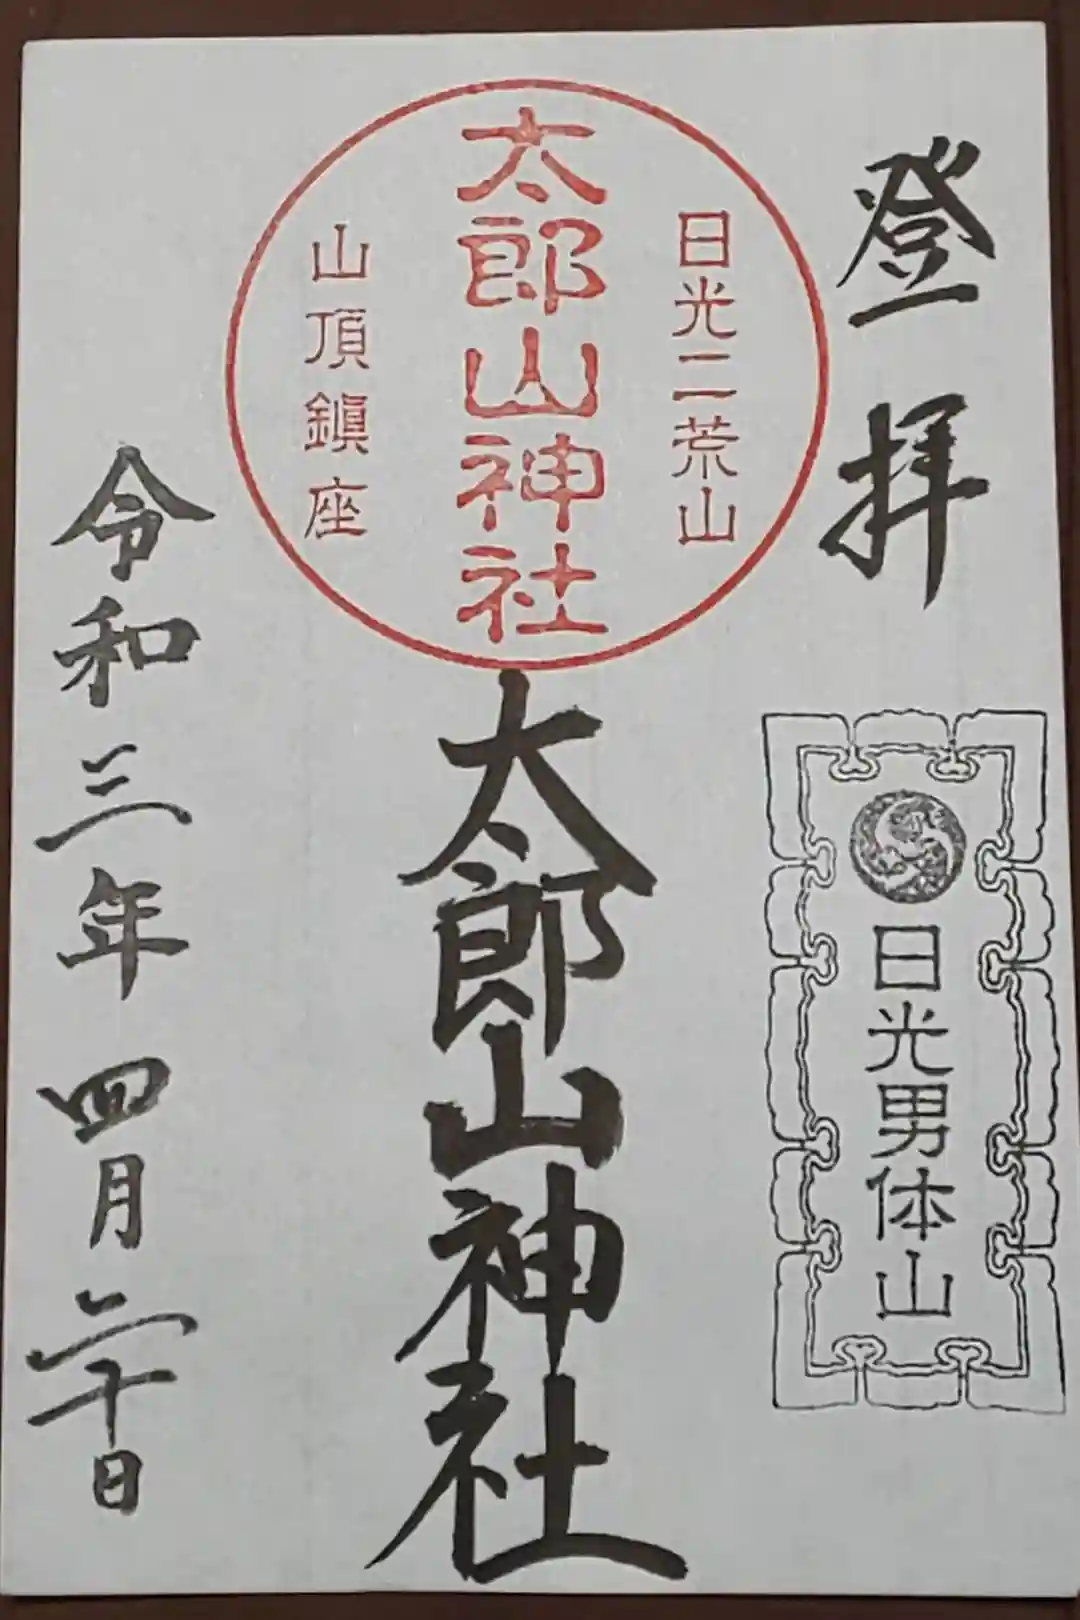 登拝
日光男体山
日光二荒山
太郎山神社
山頂鎮座
太郎山神社
令和三年四月二十日